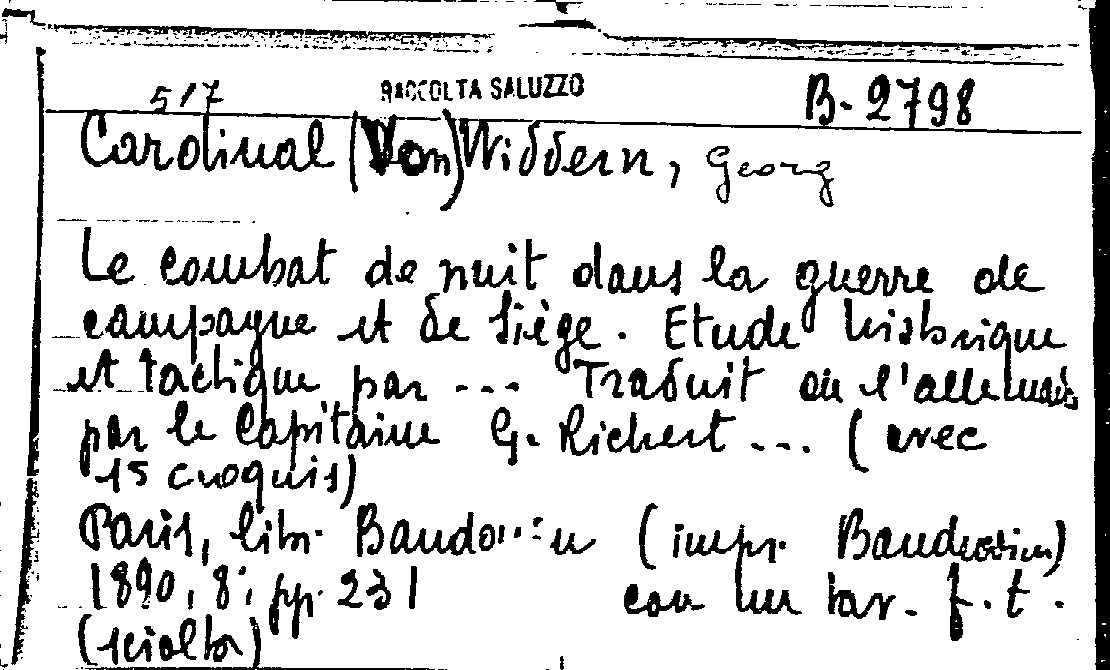 517 RACCOLTA SALUZZO B-2798
Cardinal (Von) Widdern, Georg
Le combat de nuit dans la guerre de
campagne et de siège. Etude historique
et tactique par --- Traduit de l'allemand
par le Capitaine G. Richert --- (avec
15 croquis)
Paris, libr. Baudouin (impr. Baudouin)
1890, 8° pp. 231 con un tav. f.t.
(sciolta)